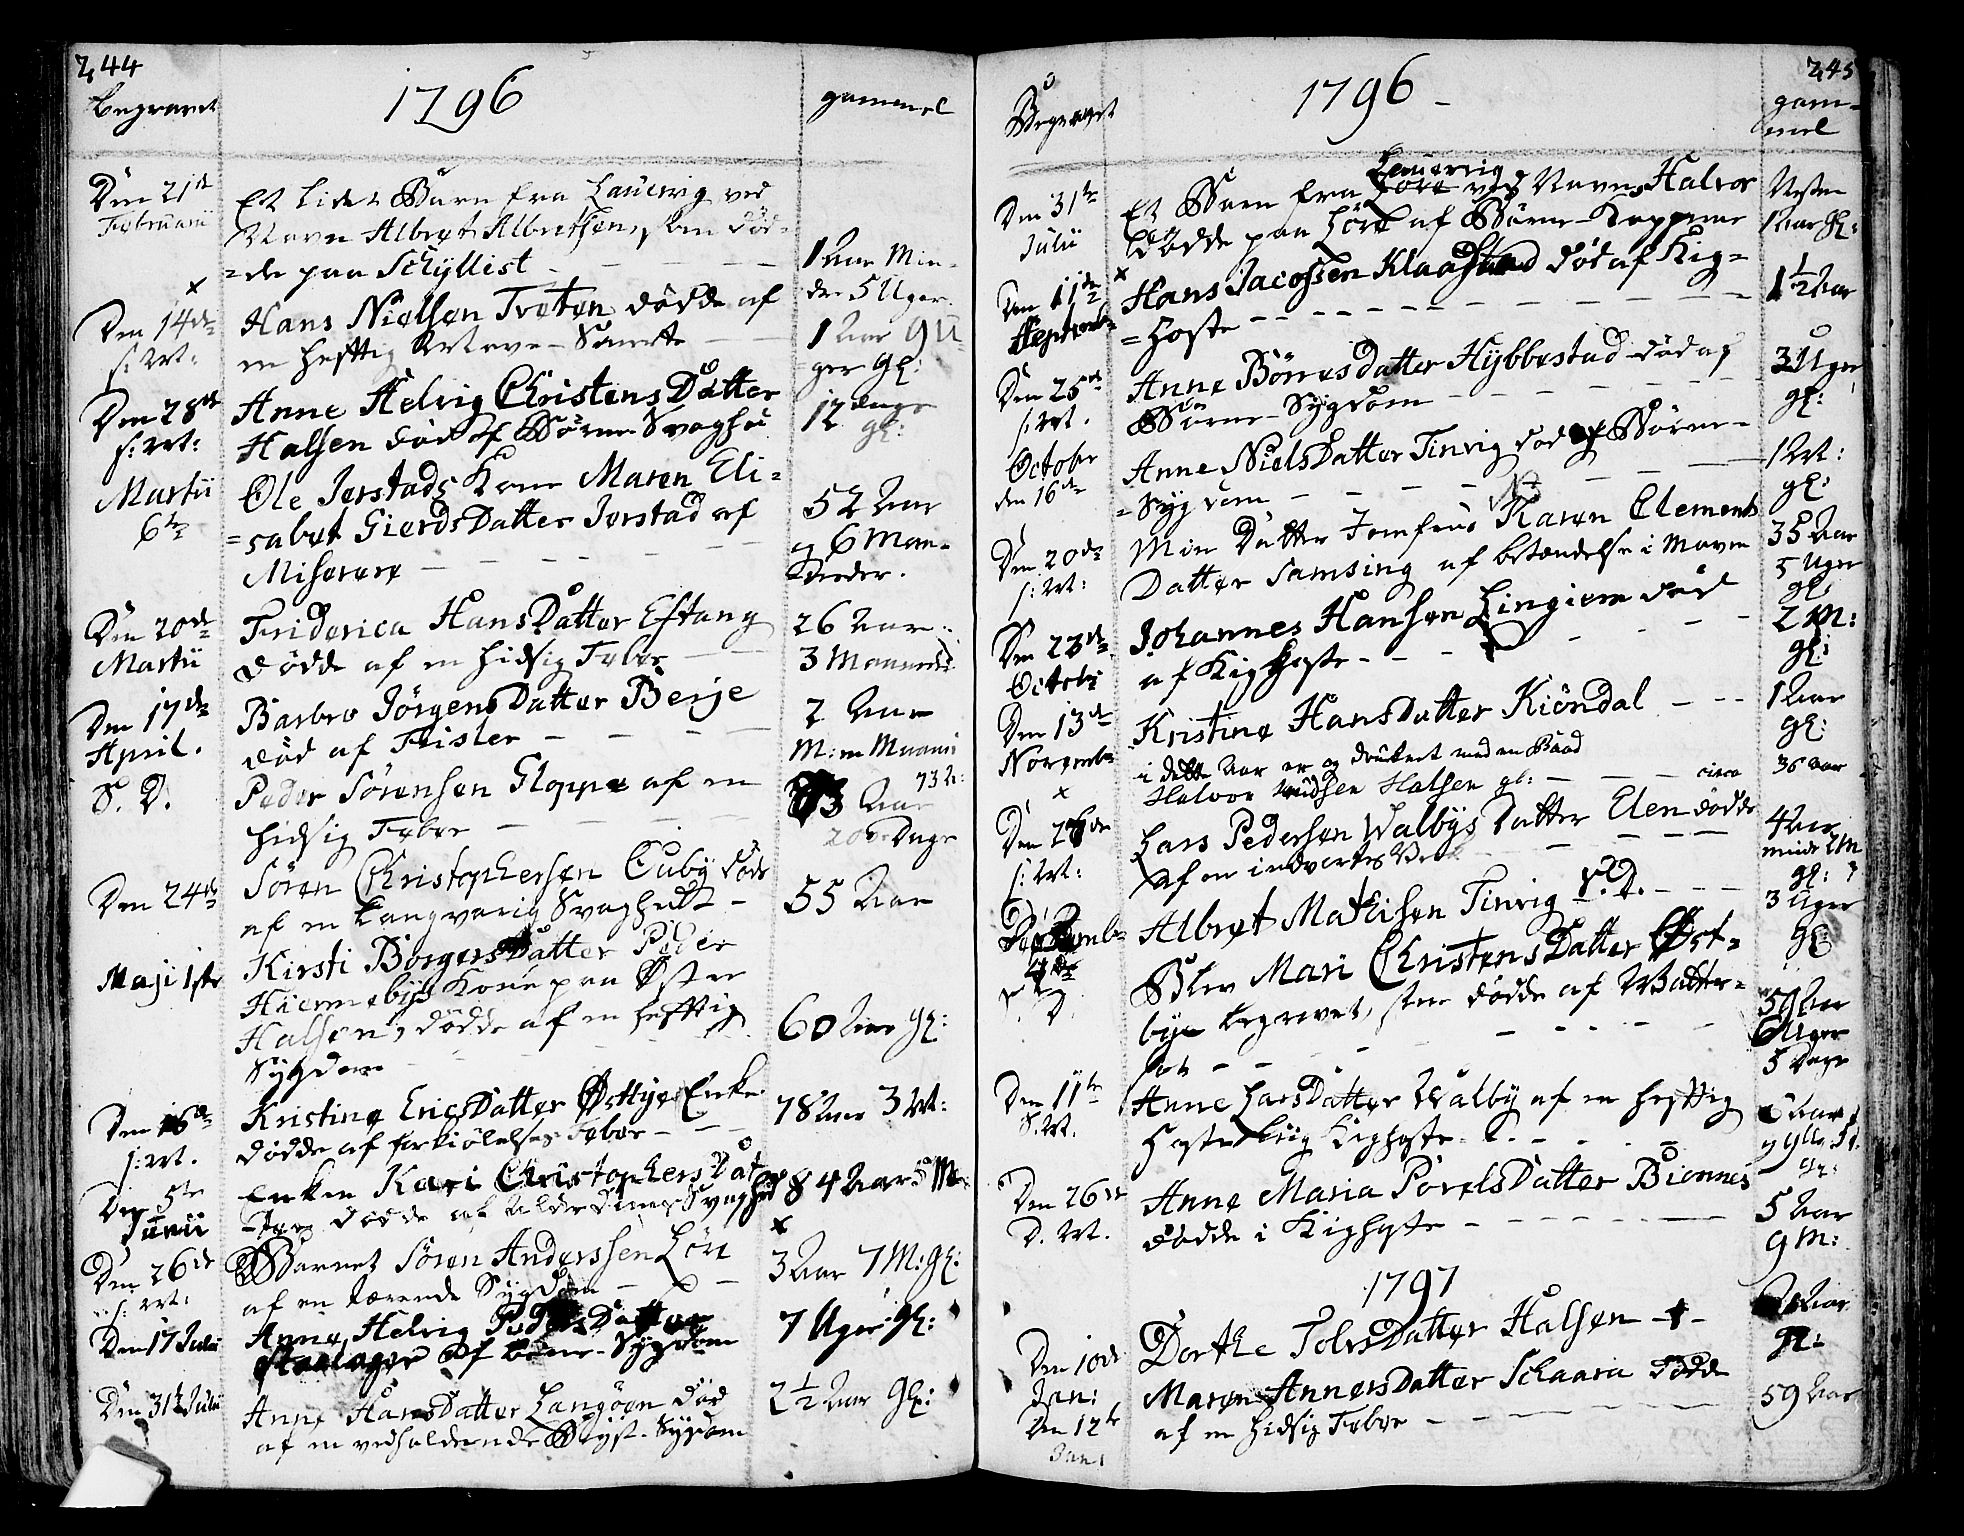 244
Begravet 1796 gammel
Den 21de Et lidet Barn fra Laurvig ved
Februarii Navn Albret Albretsen, som død-
=de paa Schyllist - - - 1 Aar Min-
dre 5 Uger.
Den 14de Hans Nielsen Treten døde af 1 Aar 9 U-
s: M: en heftig Mave-Smerte ger gl:
Den 28de Anne Helvig Christens Datter 12 Dage
s: M: Halsen død af Børne Svaghed gl:
Martii Ole Jerstads Kone Maren Eli= 52 Aar
6te =sabet Gierds Datter Jerstad af og 6 Maa-
Miserere - - - neder.
Den 20de Friderica Hans Datter Eftang 26 Aar
Martii døde af en hidsig Feber 3 Maaneder
Den 17de Barbro Jørgens Datter Berje 2 Aar
April. død af Frisler - - - M: en Maaned
S. D. Peder Sørensen Gloppe af en 73 Aar
hidsig Feber - - - Dage
Den 24de Søren Christophersen Ouby døde
af en langvarig Svaghed - 55 Aar
Maji 1ste Kirsti Børgers Datter Peder
Hiemmebyes Kone paa Øster
Halsen, døde af en heftig 60 Aar gl:
Sygdom
Den 16de Kristine Erics Datter Enke 78 Aar 3 M:
s: M. døde af forkiølelses Feber - - -
Den 5te Enken Kari Christophers Dat 84 Aar 5 M:
Junii =ter døde af Alderdoms Svaghed
Den 26de Barnet Søren Anderssen Løve 3 Aar 7 M: gl:
s: M: af en tærende Sygdom - - -
Den 17 Julii Anne Helvig Peders Datter 7 Uger gl:
af Børne-Sygdom
Den 31te Julii Anne Hans Datter Langøen død 2 1/2 Aar gl:
af en vedholdende Bryst-Sygdom
245
Begravet 1796 - gam-
mel
Laurvig
Den 31te Et Barn fra ved Navn Halvor Nesten
Julii døde paa Løve af Børne-Kopperne 1 Aar gl:
Den 11te Hans Jacobsen Klaastad død af Kig= 1 1/2 Aar
Septemb= =hoste - - - - - -
Den 25de Anne Børres Datter Hybbestad død af 3 Uger
s: M. Børne-Sygdom - - - gl:
October Anne Niels Datter Tinvig død af Børne- 1 M:
den 16de =Sygdom - - - gl:
Den 20de Min Datter Jomfrue Karen Clements 35 Aar
s: M: Datter Samsing af betændelse i Maven 5 Uger
gl:
Den 23de Johannes Hansen Lingiem død 2 M:
Octobr af Kighoste - - - gl:
Den 13de Kristine Hans Datter Kiøndal - - - 1 Aar
Novembr gl:
i dette Aar er og druknet med en Baad
Halvor Halsen gl: - - - circa 36 Aar
Den 26de Lars Pedersen Walbys Datter Elen døde 4 Aar
s: M: af en indvortes - - - mindre 2 M
gl:
Albret Mathisen Tinvig S. D. - - - 3 Uger
4de gl:
S. D. Blev Mari Christens Datter Øst-
bye begravet, som døde af Watter- 59 Aar
sot - - - 6 Uger
5 Dage
Den 11te Anne Lars Datter Walby af en heftig
S. M. Hoste Kighoste
Den 26de Anne Maria Povels Datter Bionnes 5 Aar
D. M. døde i Kighoste - - - 9 M:
1797
Den 10de Dorthe Tolvs Datter Halsen Aar
Jan: gl:
Den 12te Maren Anners Datter Schaara Døde 59 Aar
Jan: af en hidsig Feber - - -